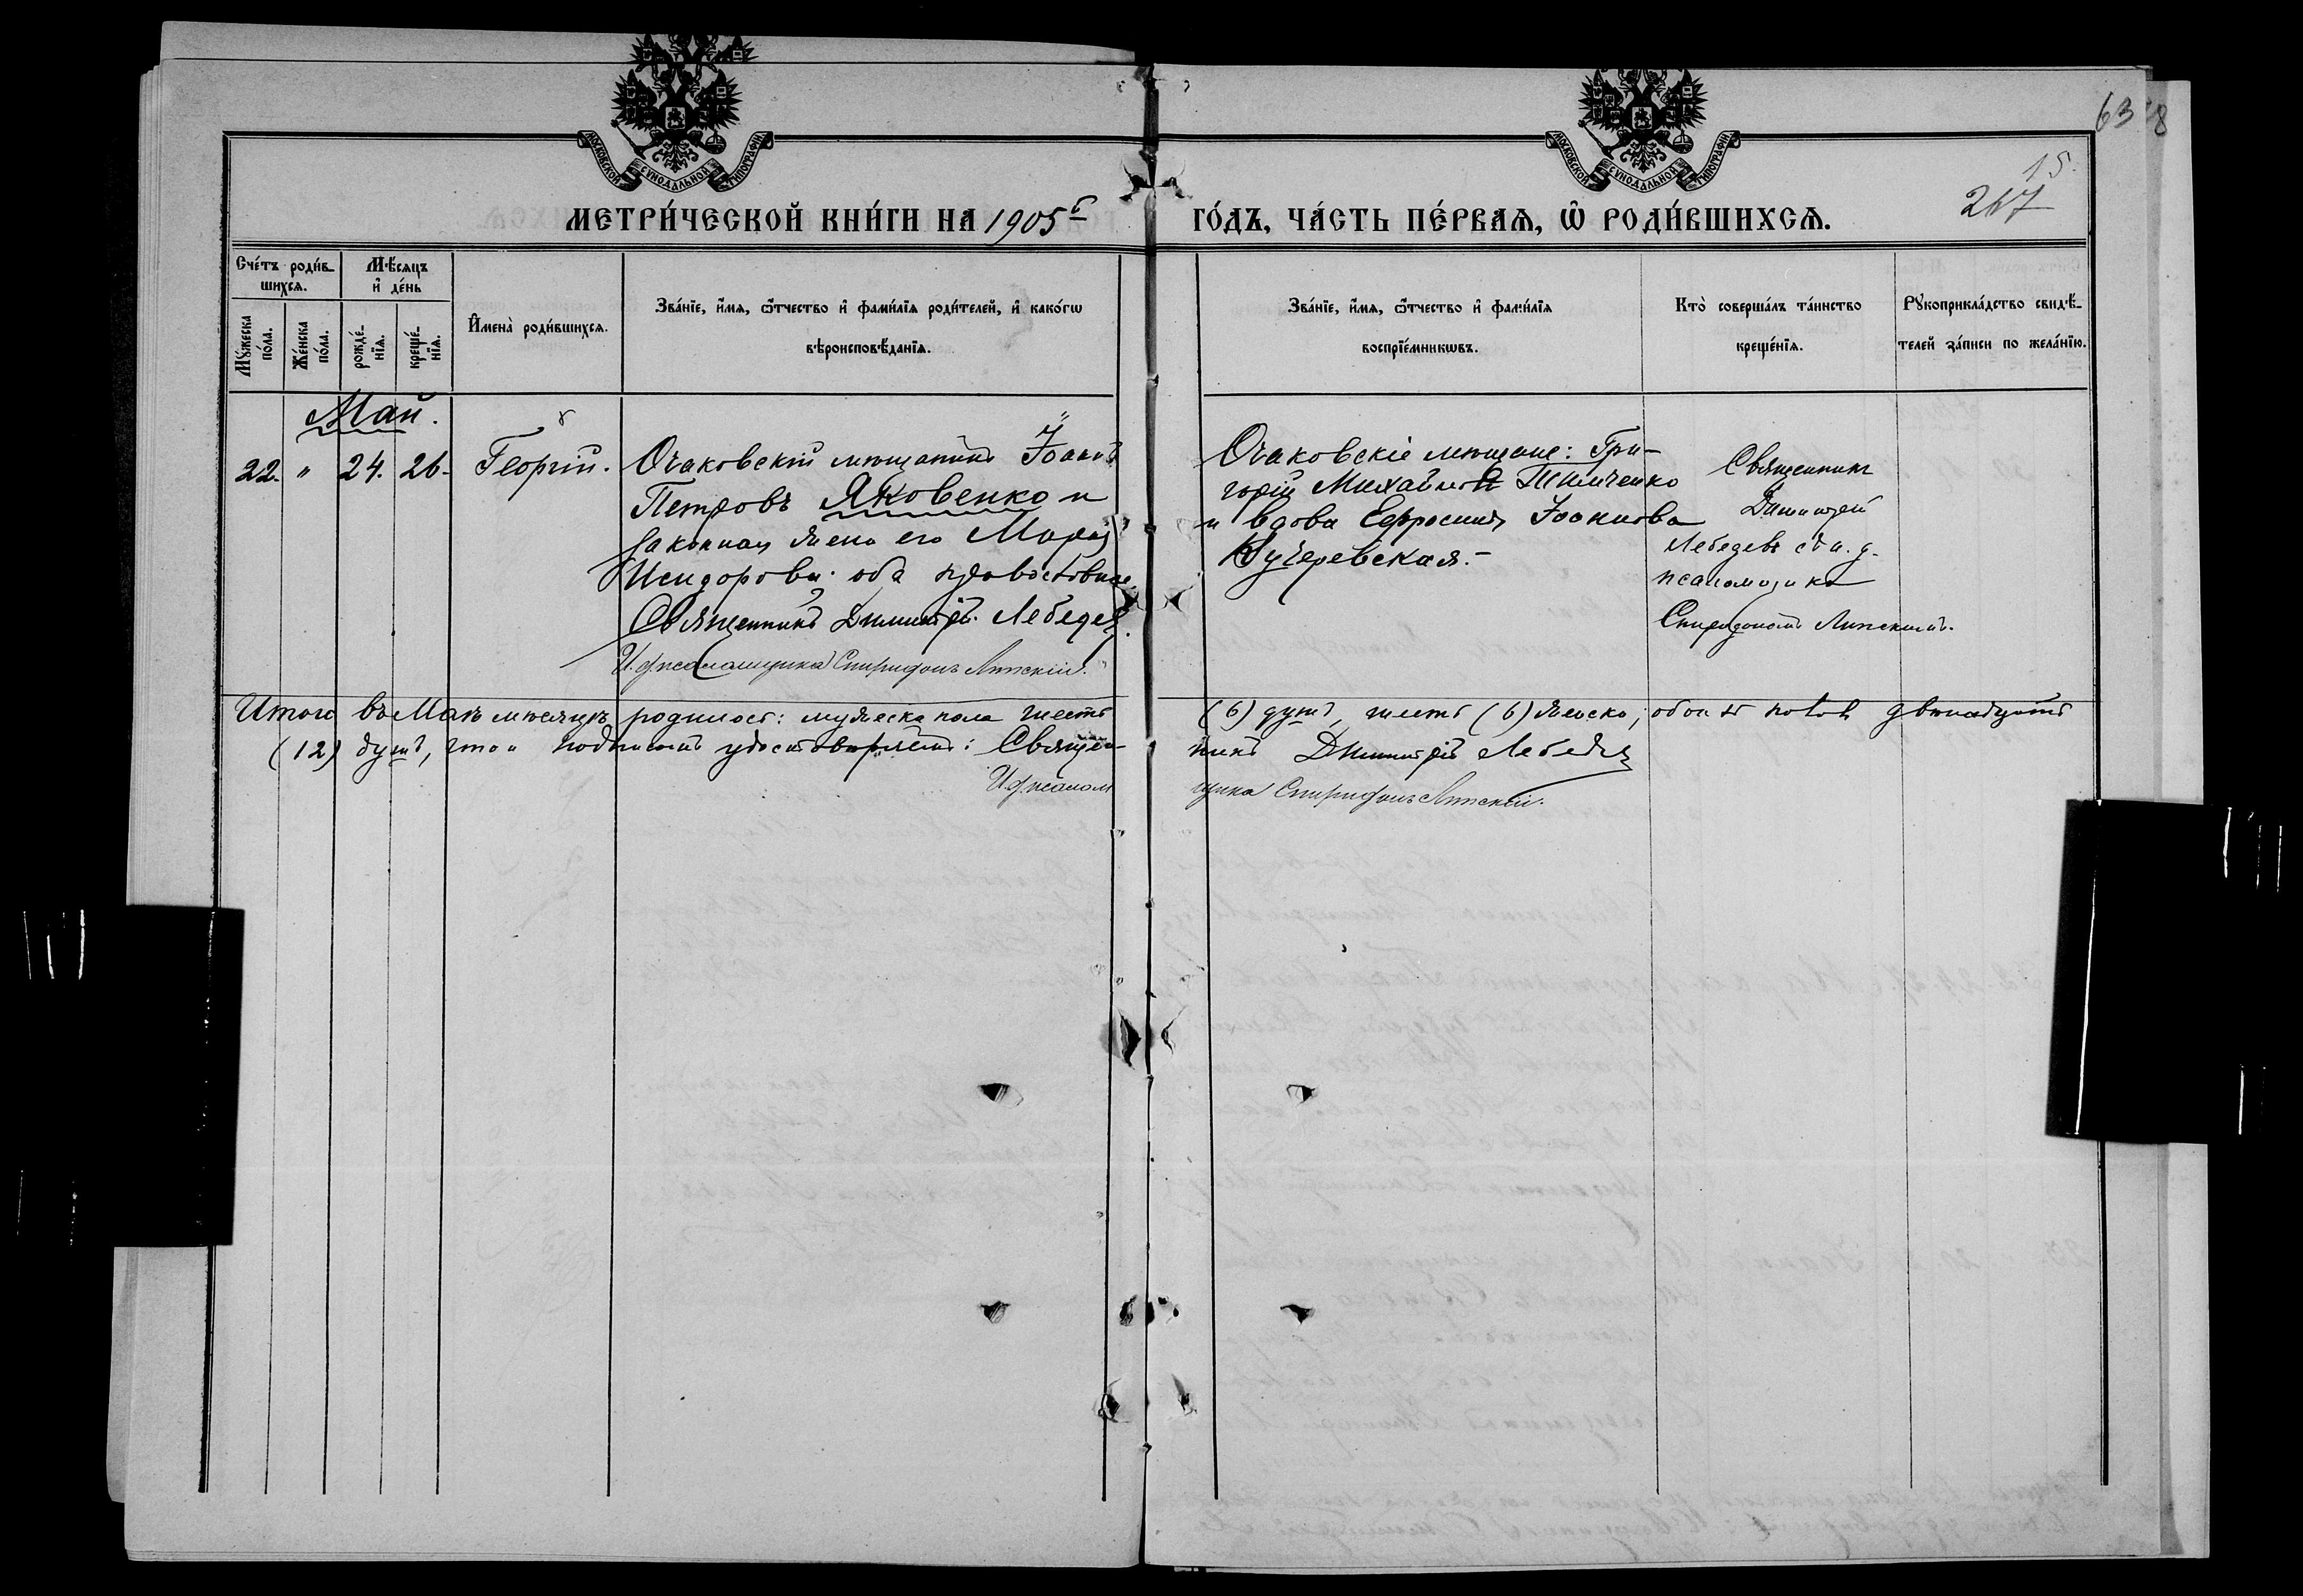 63
8
15.
217
МОСКОВСКОЙ СУНОДАЛЬНОЙ ТИПОГРАФІИ
МОСКОВСКОЙ СУНОДАЛЬНОЙ ТИПОГРАФІИ
МЕТРИ́ЧЕСКОЙ КНИ́ГИ НА 1905 й ГО́ДЪ, ЧА́СТЬ ПЕ́РВАѦ, Ѡ҆ РОДИ́ВШИХСѦ.
Сче́тъ роди́в-
шихсѧ.
Мꙋ́жеска
по́ла.
Же́нска
по́ла.
Мѣ́сѧцъ
и҆ де́нь
рожде́-
нїѧ.
креще́-
нїѧ.
И҆мена̀ роди́вшихсѧ.
Зва́нїе, и҆́мѧ, ѻ҆́тчество и҆ фами́лїѧ роди́телей, и҆ како́гѡ
вѣроисповѣ́данїѧ.
Зва́нїе, и҆́мѧ, ѻ҆́тчество и҆ фами́лїѧ
воспрїе́мникѡвъ.
Кто̀ соверша́лъ та́инство
креще́нїѧ.
Рꙋкоприкла́дство свидѣ́-
телей за́писи по жела́нїю.
Май.
22. " 24. 26. Георгій.
Очаковскій мѣщанинъ Іоаннъ
Петровъ Яковенко и
законная жена его Марія
Исидорова. оба православные
Священникъ Димитрій Лебедевъ
И. д. псаломщика Спиридонъ Липскій.
Очаковскіе мѣщане: Гри-
горій Михайловъ
и вдова Евфросинія Іоаннова
Кучеревская.-
Священникъ
Димитрій
Лебедевъ съ и. д.
псаломщика
Спиридономъ Липскимъ.
Итого въ Маѣ мѣсяцѣ родилось: мужеска пола шесть (6) душъ, шесть (6) женска, обоего половъ двѣнадцать
(12) душъ, что и подписомъ удостовѣряемъ: Священ- никъ Димитрій Лебедевъ
И. д. псалом щика Спиридонъ Липскій.